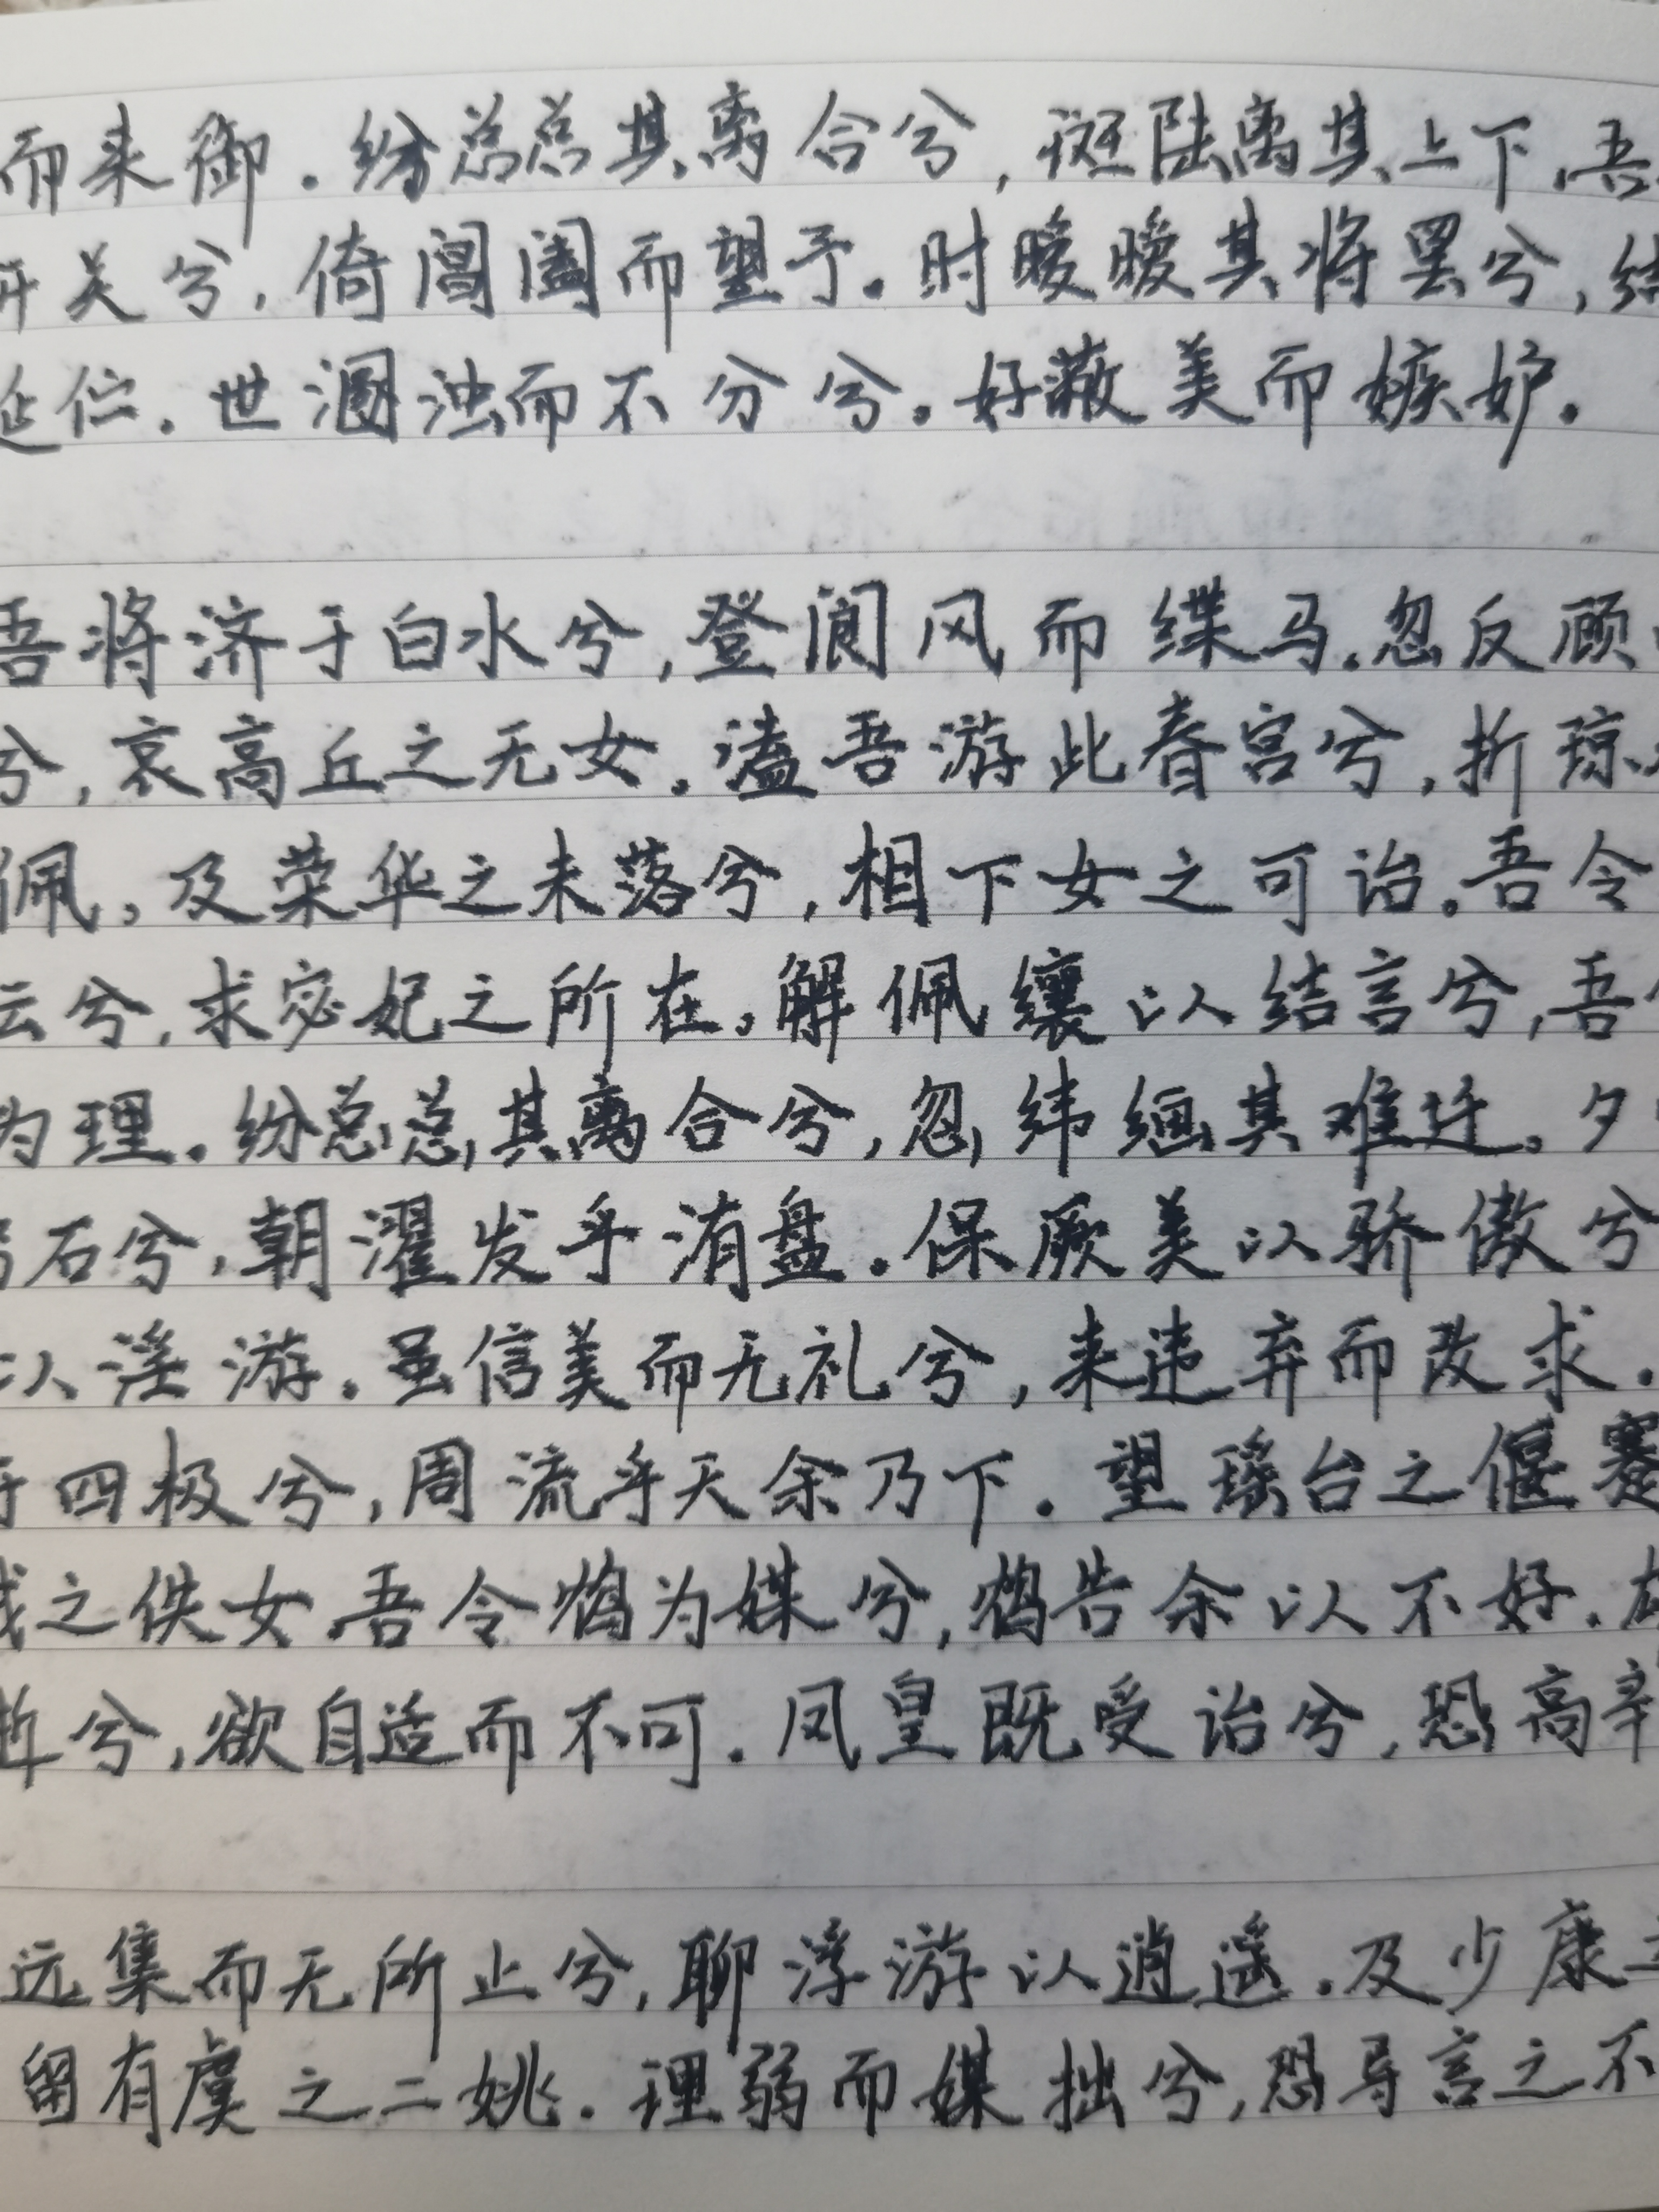 而来御.纷总总其离合兮,斑陆离其上下.吾
开关兮,倚阊阖而望予.时暧暧其将罢兮,结
延伫.世溷浊而不分兮.好蔽美而嫉妒.
吾将济于白水兮,登阆风而緤马.忽反顾
兮,哀高丘之无女.溘吾游此春宫兮,折琼
佩,及荣华之未落兮,相下女之可诒.吾令
云兮,求宓妃之所在.解佩纕以结言兮,吾
为理.纷总总其离合兮,忽纬繣其难迁.夕
石兮,朝濯发乎洧盘.保厥美以骄傲兮
以淫游.虽信美而无礼兮,来违弃而改求.
于四极兮,周流乎天余乃下.望瑶台之偃蹇
娀之佚女吾令鸩为媒兮,鸩告余以不好.
兮,欲自适而不可.凤皇既受诒兮,恐高辛
远集而无所止兮,聊浮游以逍遥.及少康
留有虞之二姚.理弱而媒拙兮,恐导言之不